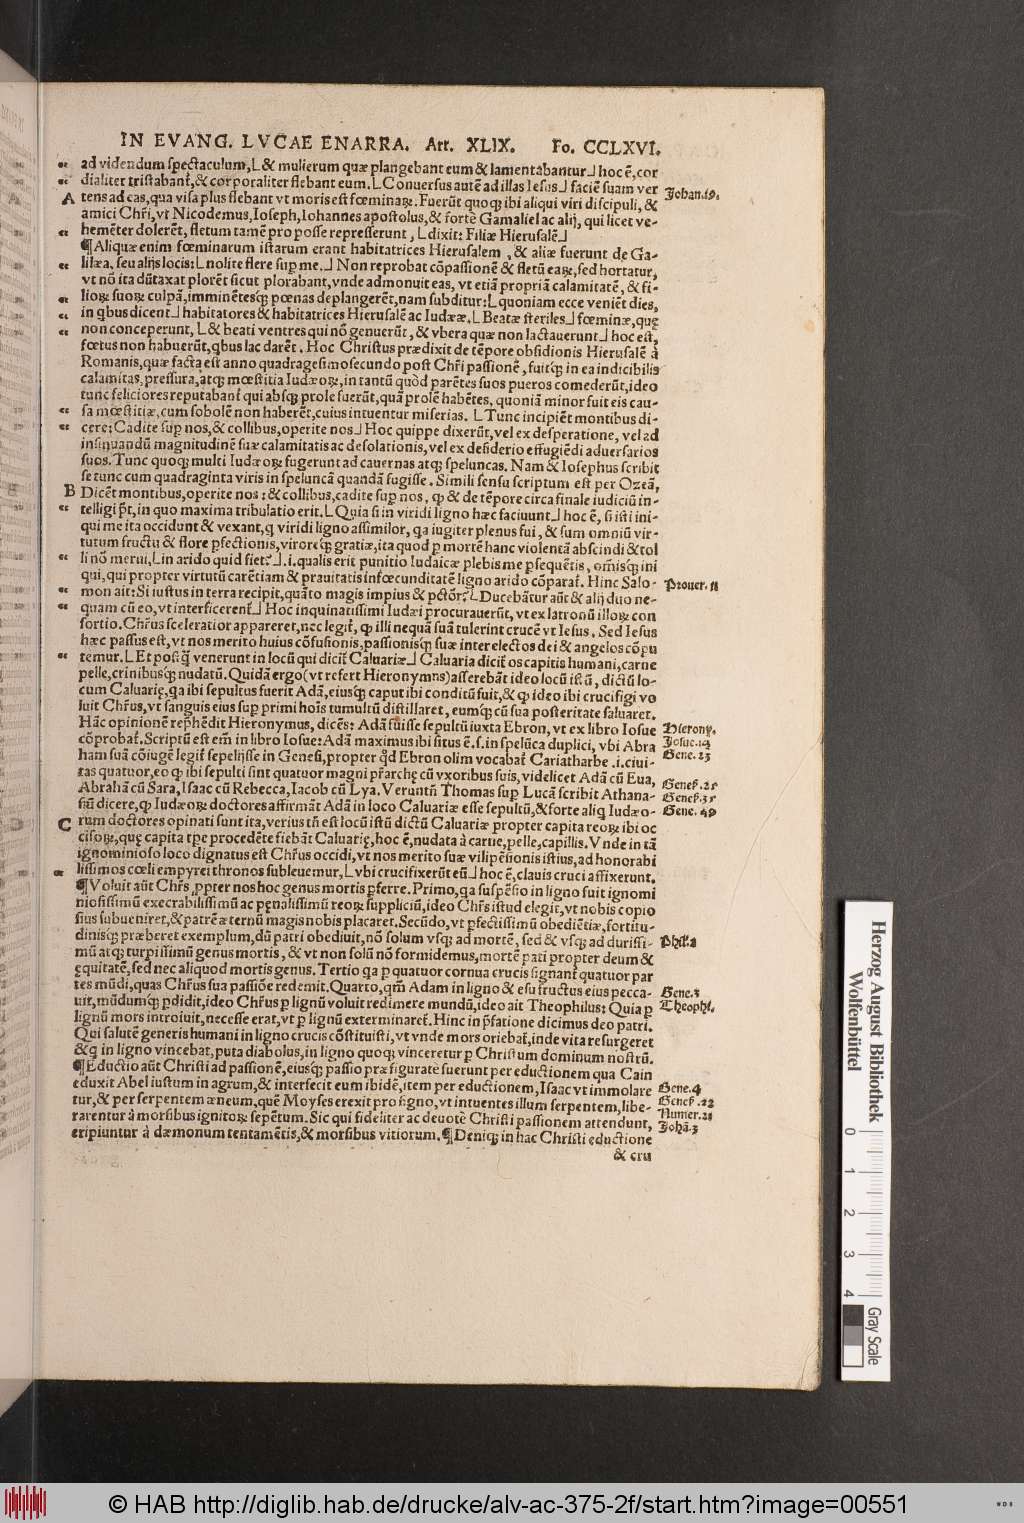 IN EVANG. LVCAE ENARRA. Art. XLIX. Fo. CCLXVI.
ad videndum spectaculum, L& mulierum quæ plangebant eum & lamentabantur⅃ hoc ē, cor
dialiter tristabant, & corporaliter flebant eum. LConuersus autē ad illas Iesus⅃ faciē suam ver
A tens ad eas, qua visa plus flebant vt moris est fœminaꝝ. Fuerūt quoqꝫ ibi aliqui viri discipuli, &
Johan.19.
amici Chr̄i, vt Nicodemus, Ioseph, Iohannes apostolus, & fortè Gamaliel ac alij, qui licet ve-
hemēter dolerēt, fletum tamē pro posse represserunt, Ldixit: Filiæ Hierusalē⅃
¶Aliquæ enim fœminarum istarum erant habitatrices Hierusalem, & aliæ fuerunt de Ga-
lilæa, seu alijs locis: Lnolite flere suꝑ me.⅃ Non reprobat cōpassionē & fletū eaꝝ, sed hortatur,
vt nō ita dūtaxat plorēt sicut plorabant, vnde admonuit eas, vt etiā propriā calamitatē, & fi-
lioꝝ suoꝝ culpā, imminētesqꝫ pœnas deplangerēt, nam subditur: Lquoniam ecce veniēt dies,
in qbus dicent⅃ habitatores & habitatrices Hierusalē ac Iudææ. LBeatæ steriles⅃ fœminæ, quę
non conceperunt, L& beati ventres qui nō genuerūt, & vbera quæ non lactauerunt⅃ hoc est,
fœtus non habuerūt, qbus lac darēt. Hoc Christus prædixit de tēpore obsidionis Hierusalē à
Romanis, quæ facta est anno quadragesimosecundo post Chr̄i passionē, fuitqꝫ in ea indicibilis
calamitas, pressura, atqꝫ mœstitia Iudæoꝝ, in tantū quòd parētes suos pueros comederūt, ideo
tunc feliciores reputabant qui absqꝫ prole fuerūt, quā prolē habētes, quoniā minor fuit eis cau-
sa mœstitiæ, cum sobolē non haberēt, cuius intuentur miserias. LTunc incipiēt montibus di-
cere: Cadite suꝑ nos, & collibus, operite nos⅃ Hoc quippe dixerūt, vel ex desperatione, vel ad
insinuandū magnitudinē suæ calamitatis ac desolationis, vel ex desiderio effugiēdi aduersarios
suos. Tunc quoqꝫ multi Iudæoꝝ fugerunt ad cauernas atqꝫ speluncas. Nam & Iosephus scribit
se tunc cum quadraginta viris in speluncā quandā fugisse. Simili sensu scriptum est per Ozeā,
B Dicēt montibus, operite nos: & collibus, cadite suꝑ nos, ꝙ & de tēpore circa finale iudiciū in-
telligi pt, in quo maxima tribulatio erit. LQuia si in viridi ligno hæc faciunt⅃ hoc ē, si isti ini-
qui me ita occidunt & vexant, q viridi ligno assimilor, qa iugiter plenus fui, & sum omniū vir-
tutum fructu & flore ꝑfectionis, viroreqꝫ gratiæ, ita quod ꝑ mortē hanc violentā abscindi & tol
li nō merui, Lin arido quid fiet?⅃ .i. qualis erit punitio Iudaicæ plebis me ꝑsequētis, om̄isqꝫ ini
qui, qui propter virtutū carētiam & prauitatis infœcunditatē ligno arido cōparat. Hinc Salo-
Prouer.11
mon ait: Si iustus in terra recipit, quāto magis impius & pctōr? LDucebātur aūt & alij duo ne-
quam cū eo, vt interficerent⅃ Hoc inquinatissimi Iudæi procurauerūt, vt ex latronū illoꝝ con
sortio, Chr̄us sceleratior appareret, nec legit, ꝙ illi nequā suā tulerint crucē vt Iesus. Sed Iesus
hæc passus est, vt nos merito huius cōfusionis, passionisqꝫ suæ inter electos dei & angelos cōpu
temur. LEt postq̄ venerunt in locū qui dicit Caluariæ⅃ Caluaria dicit os capitis humani, carne
pelle, crinibusqꝫ nudatū. Quidā ergo (vt refert Hieronymns) asserebāt ideo locū istū, dictū lo-
cum Caluarię, qa ibi sepultus fuerit Adā, eiusqꝫ caput ibi conditū fuit, & ꝙ ideo ibi crucifigi vo
luit Chr̄us, vt sanguis eius suꝑ primi hoīs tumultū distillaret, eumqꝫ cū sua posteritate saluaret.
Hāc opinionē repħēdit Hieronymus, dicēs: Adā fuisse sepultū iuxta Ebron, vt ex libro Iosue
Hierony.
cōprobat. Scriptū est em̄ in libro Iosue: Adā maximus ibi situs ē. s. in spelūca duplici, vbi Abra
Josue.14
ham suā cōiugē legit sepelijsse in Genesi, propter qd̄ Ebron olim vocabat Cariatharbe .i. ciui-
Gene.23
tas quatuor, eo ꝙ ibi sepulti sint quatuor magni pr̄archę cū vxoribus suis, videlicet Adā cū Eua,
Abrahā cū Sara, Isaac cū Rebecca, Iacob cū Lya. Veruntn̄ Thomas suꝑ Lucā scribit Athana-
Genes.25
siū dicere, ꝙ Iudæoꝝ doctores affirmāt Adā in loco Caluariæ esse sepultū, & forte aliq Iudæo-
Genes.35
Gene.49
C rum doctores opinati sunt ita, verius tn̄ est locū istū dictū Caluariæ propter capita reoꝝ ibi oc
cisoꝝ, quę capita tꝑe procedēte fiebāt Caluarię, hoc ē, nudata à carne, pelle, capillis. Vnde in tā
ignominioso loco dignatus est Chr̄us occidi, vt nos merito suæ vilipēsionis istius, ad honorabi
lissimos cœli empyrei thronos subleuemur, Lvbi crucifixerūt eū⅃ hoc ē, clauis cruci affixerunt.
¶Voluit aūt Chr̄s ꝓpter nos hoc genus mortis ꝑferre. Primo, qa suspēsio in ligno fuit ignomi
niosissimū execrabilissimū ac pęnalissimū reoꝝ suppliciū, ideo Chr̄s istud elegit, vt nobis copio
sius subueniret, & patrē æternū magis nobis placaret. Secūdo, vt ꝑfectissimū obediētiæ, fortitu-
dinisqꝫ præberet exemplum, dū patri obediuit, nō solum vsqꝫ ad mortē, sed & vsqꝫ ad durissi-
Phil.2
mū atqꝫ turpissimū genus mortis, & vt non solū nō formidemus, mortē pati propter deum &
ęquitatē, sed nec aliquod mortis genus. Tertio qa ꝑ quatuor cornua crucis signant quatuor par
tes mūdi, quas Chr̄us sua passiōe redemit. Quarto, qm̄ Adam in ligno & esu fructus eius pecca-
Gene.3
uit, mūdumqꝫ ꝑdidit, ideo Chr̄us ꝑ lignū voluit redimere mundū, ideo ait Theophilus: Quia ꝑ
Theophi.
lignū mors introiuit, necesse erat, vt ꝑ lignū exterminaret. Hinc in p̄fatione dicimus deo patri.
Qui salutē generis humani in ligno crucis cōstituisti, vt vnde mors oriebat, inde vita resurgeret
& q in ligno vincebat, puta diabolus, in ligno quoqꝫ vinceretur ꝑ Christum dominum nostrū.
¶Eductio aūt Christi ad passionē, eiusqꝫ passio præfiguratę fuerunt per eductionem qua Cain
eduxit Abel iustum in agrum, & interfecit eum ibidē, item per eductionem, Isaac vt immolare
Gene.4
tur, & per serpentem æneum, quē Moyses erexit pro signo, vt intuentes illum serpentem, libe-
Genes.22
rarentur à morsibus ignitoꝝ sepētum. Sic qui fideliter ac deuotè Christi passionem attendunt,
Numer.21
eripiuntur à dæmonum tentamētis, & morsibus vitiorum. ¶Deniqꝫ in hac Christi eductione
Johā.3
& cru
Herzog August Bibliothek
Wolfenbüttel
0 1 2 3 4
Gray Scale
© HAB http://diglib.hab.de/drucke/alv-ac-375-2f/start.htm?image=00551